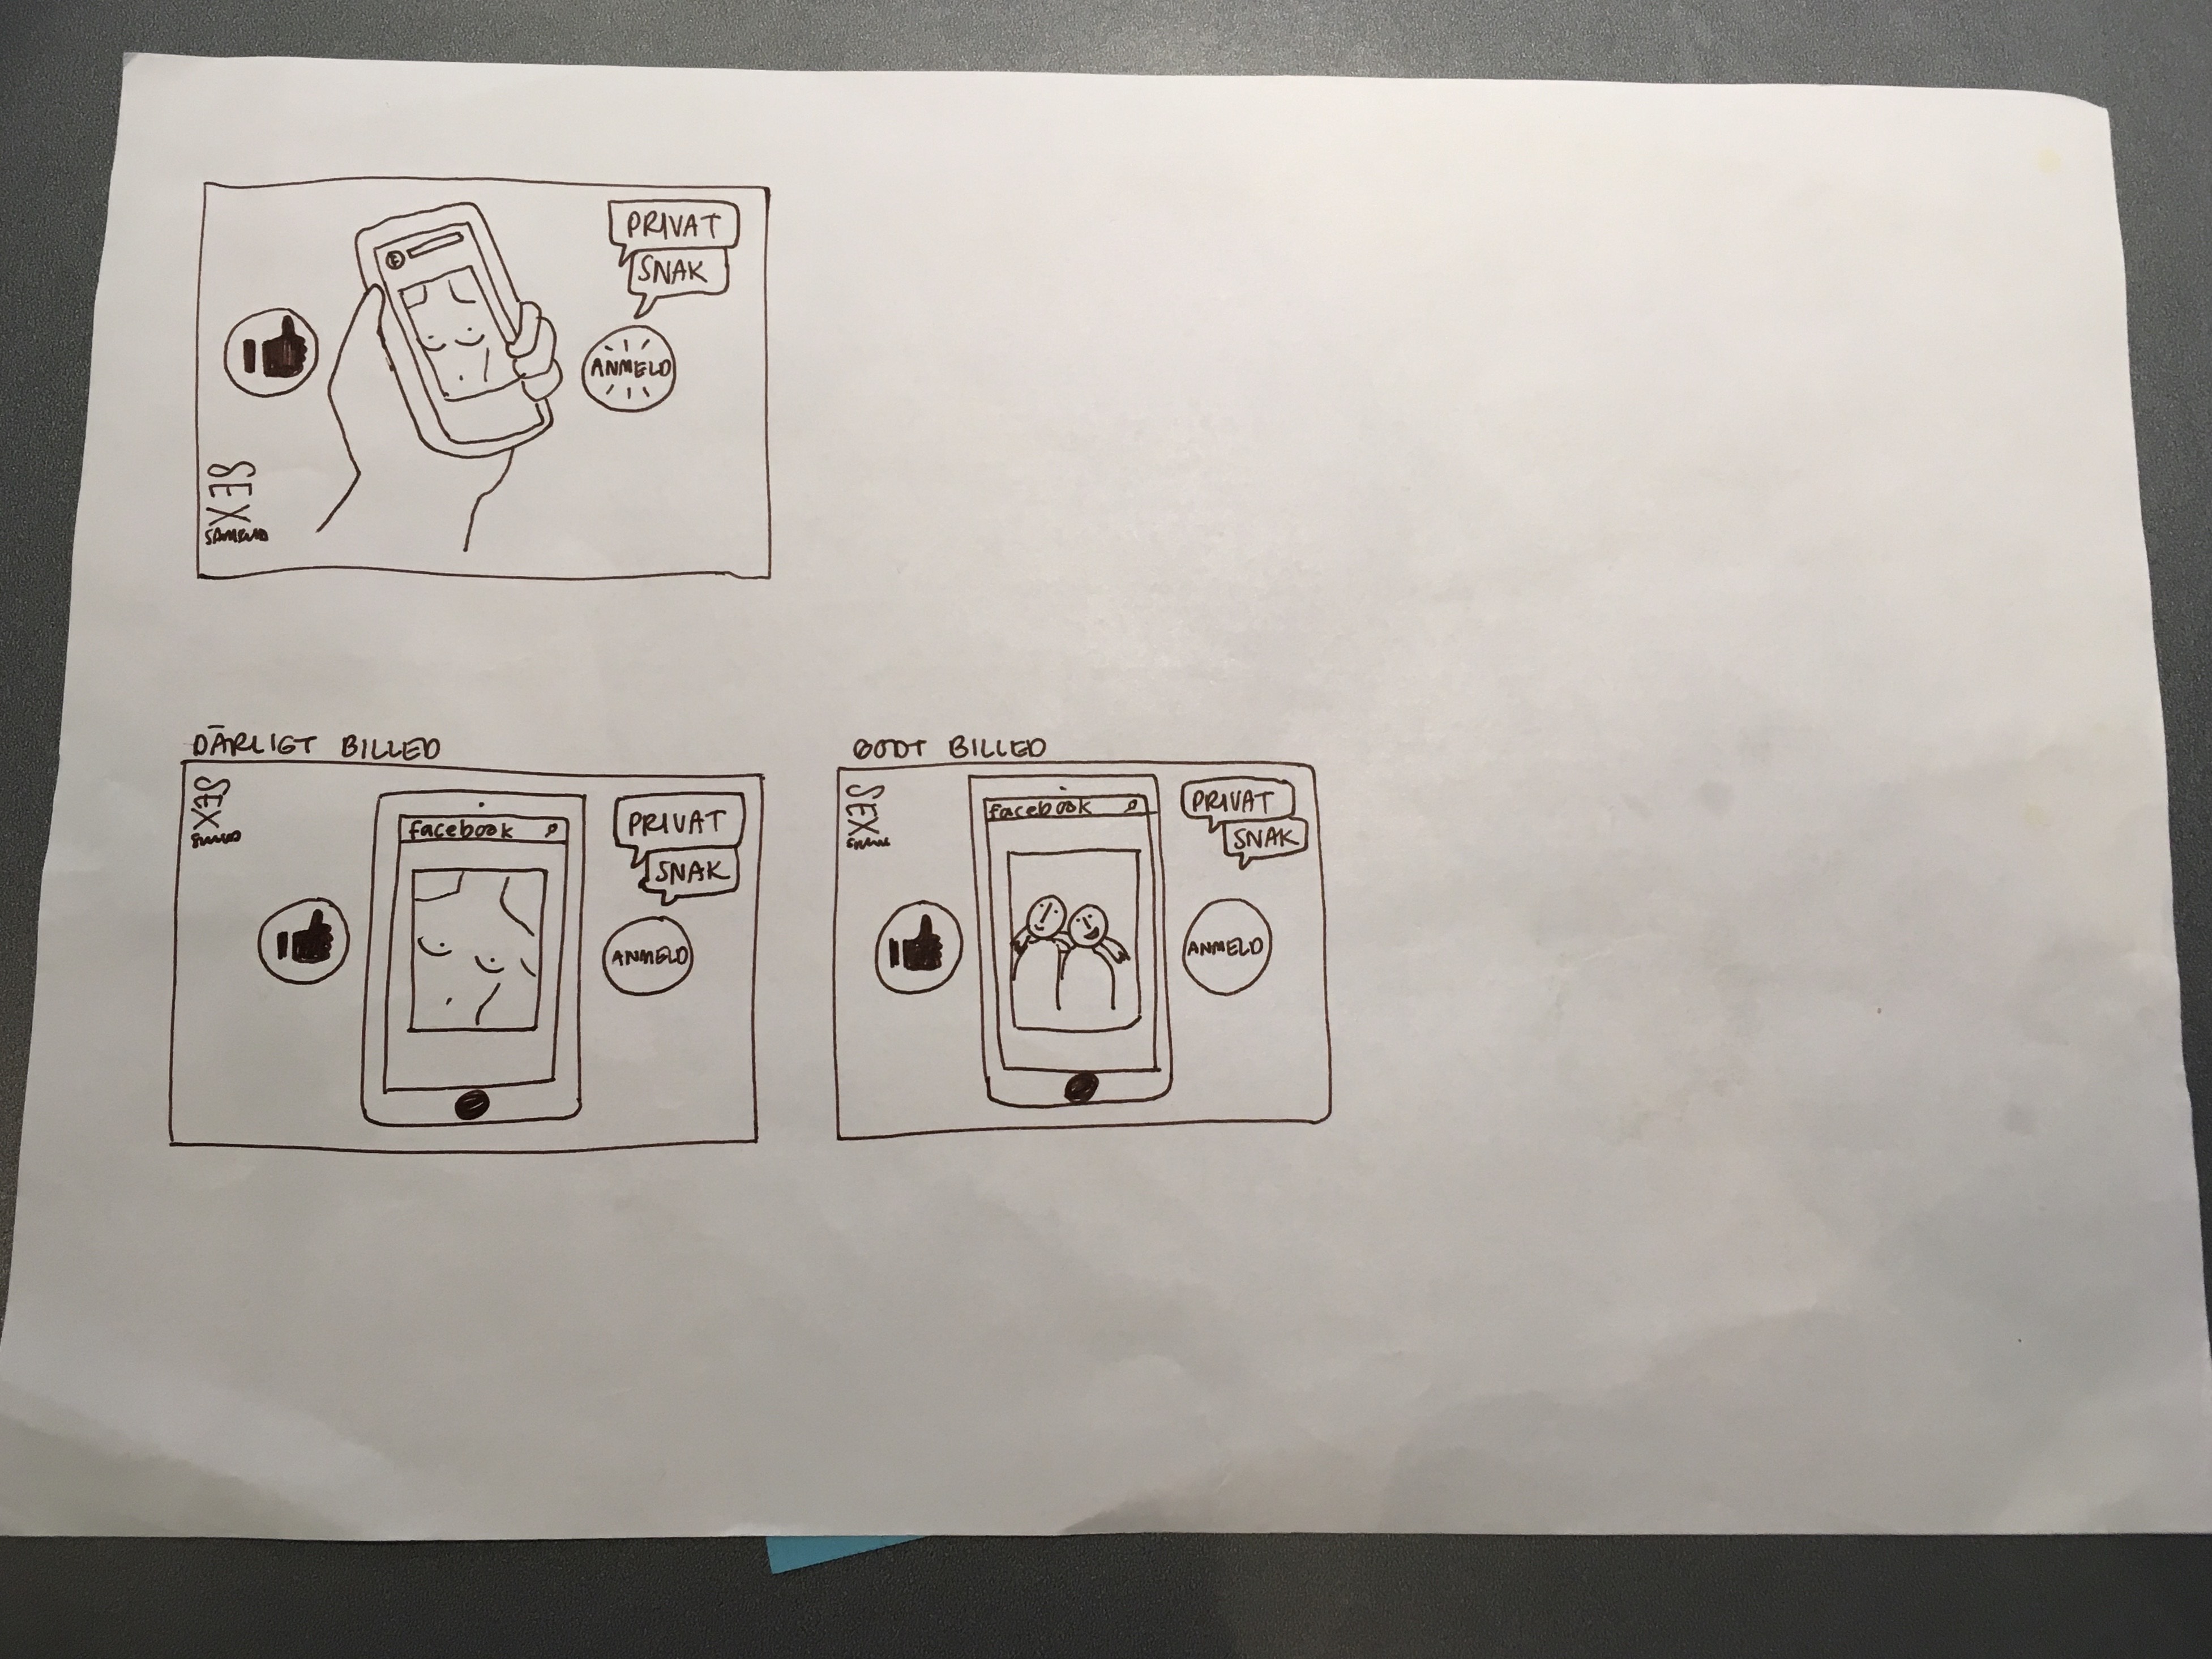 PRIVAT
SNAK
ANMELD
SEX
DÅRLIGT BILLED
SEX
facebook
PRIVAT
SNAK
ANMELD
GODT BILLED
SEX
facebook
PRIVAT
SNAK
ANMELD